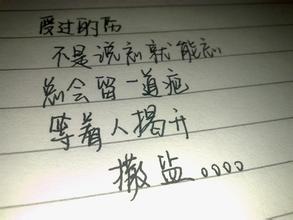 受过的伤
不是说忘就能忘
总会留一道疤
等着人揭开
撒监。。。。